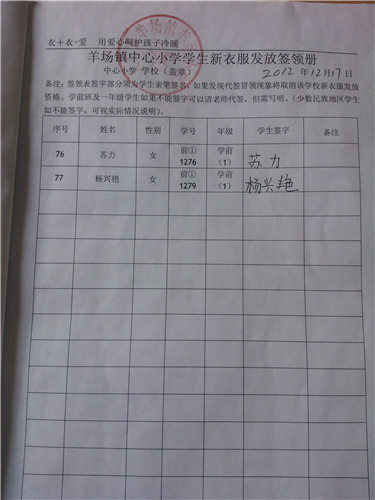 衣+衣=爱 用爱心呵护孩子冷暖
羊场镇中心小学学生新衣服发放签领册
中心小学 学校（盖章） 2012 年 12月17日
备注：签领表签字部分须为学生亲笔签名，如果发现代签冒领现象将取消该学校新衣服发放
资格，学前班及一年级学生如果不能签字可以请老师代签，但需写明。（少数民族地区学生
如不能签字，可视实际情况说明）。
序号 姓名 性别 学号 年级 学生签字 备注
76 苏力 女 前① 1276 学前（1） 苏力
77 杨兴艳 女 前① 1279 学前（1） 杨兴艳